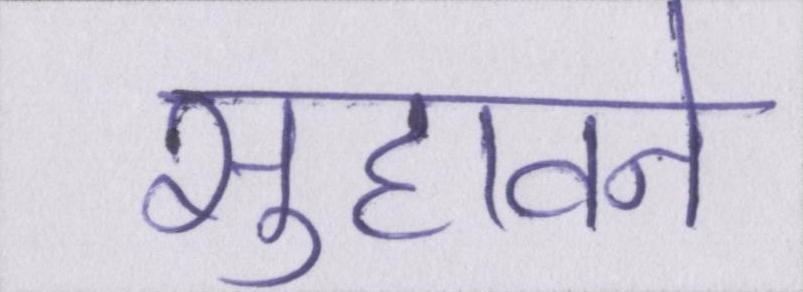 सुहावने